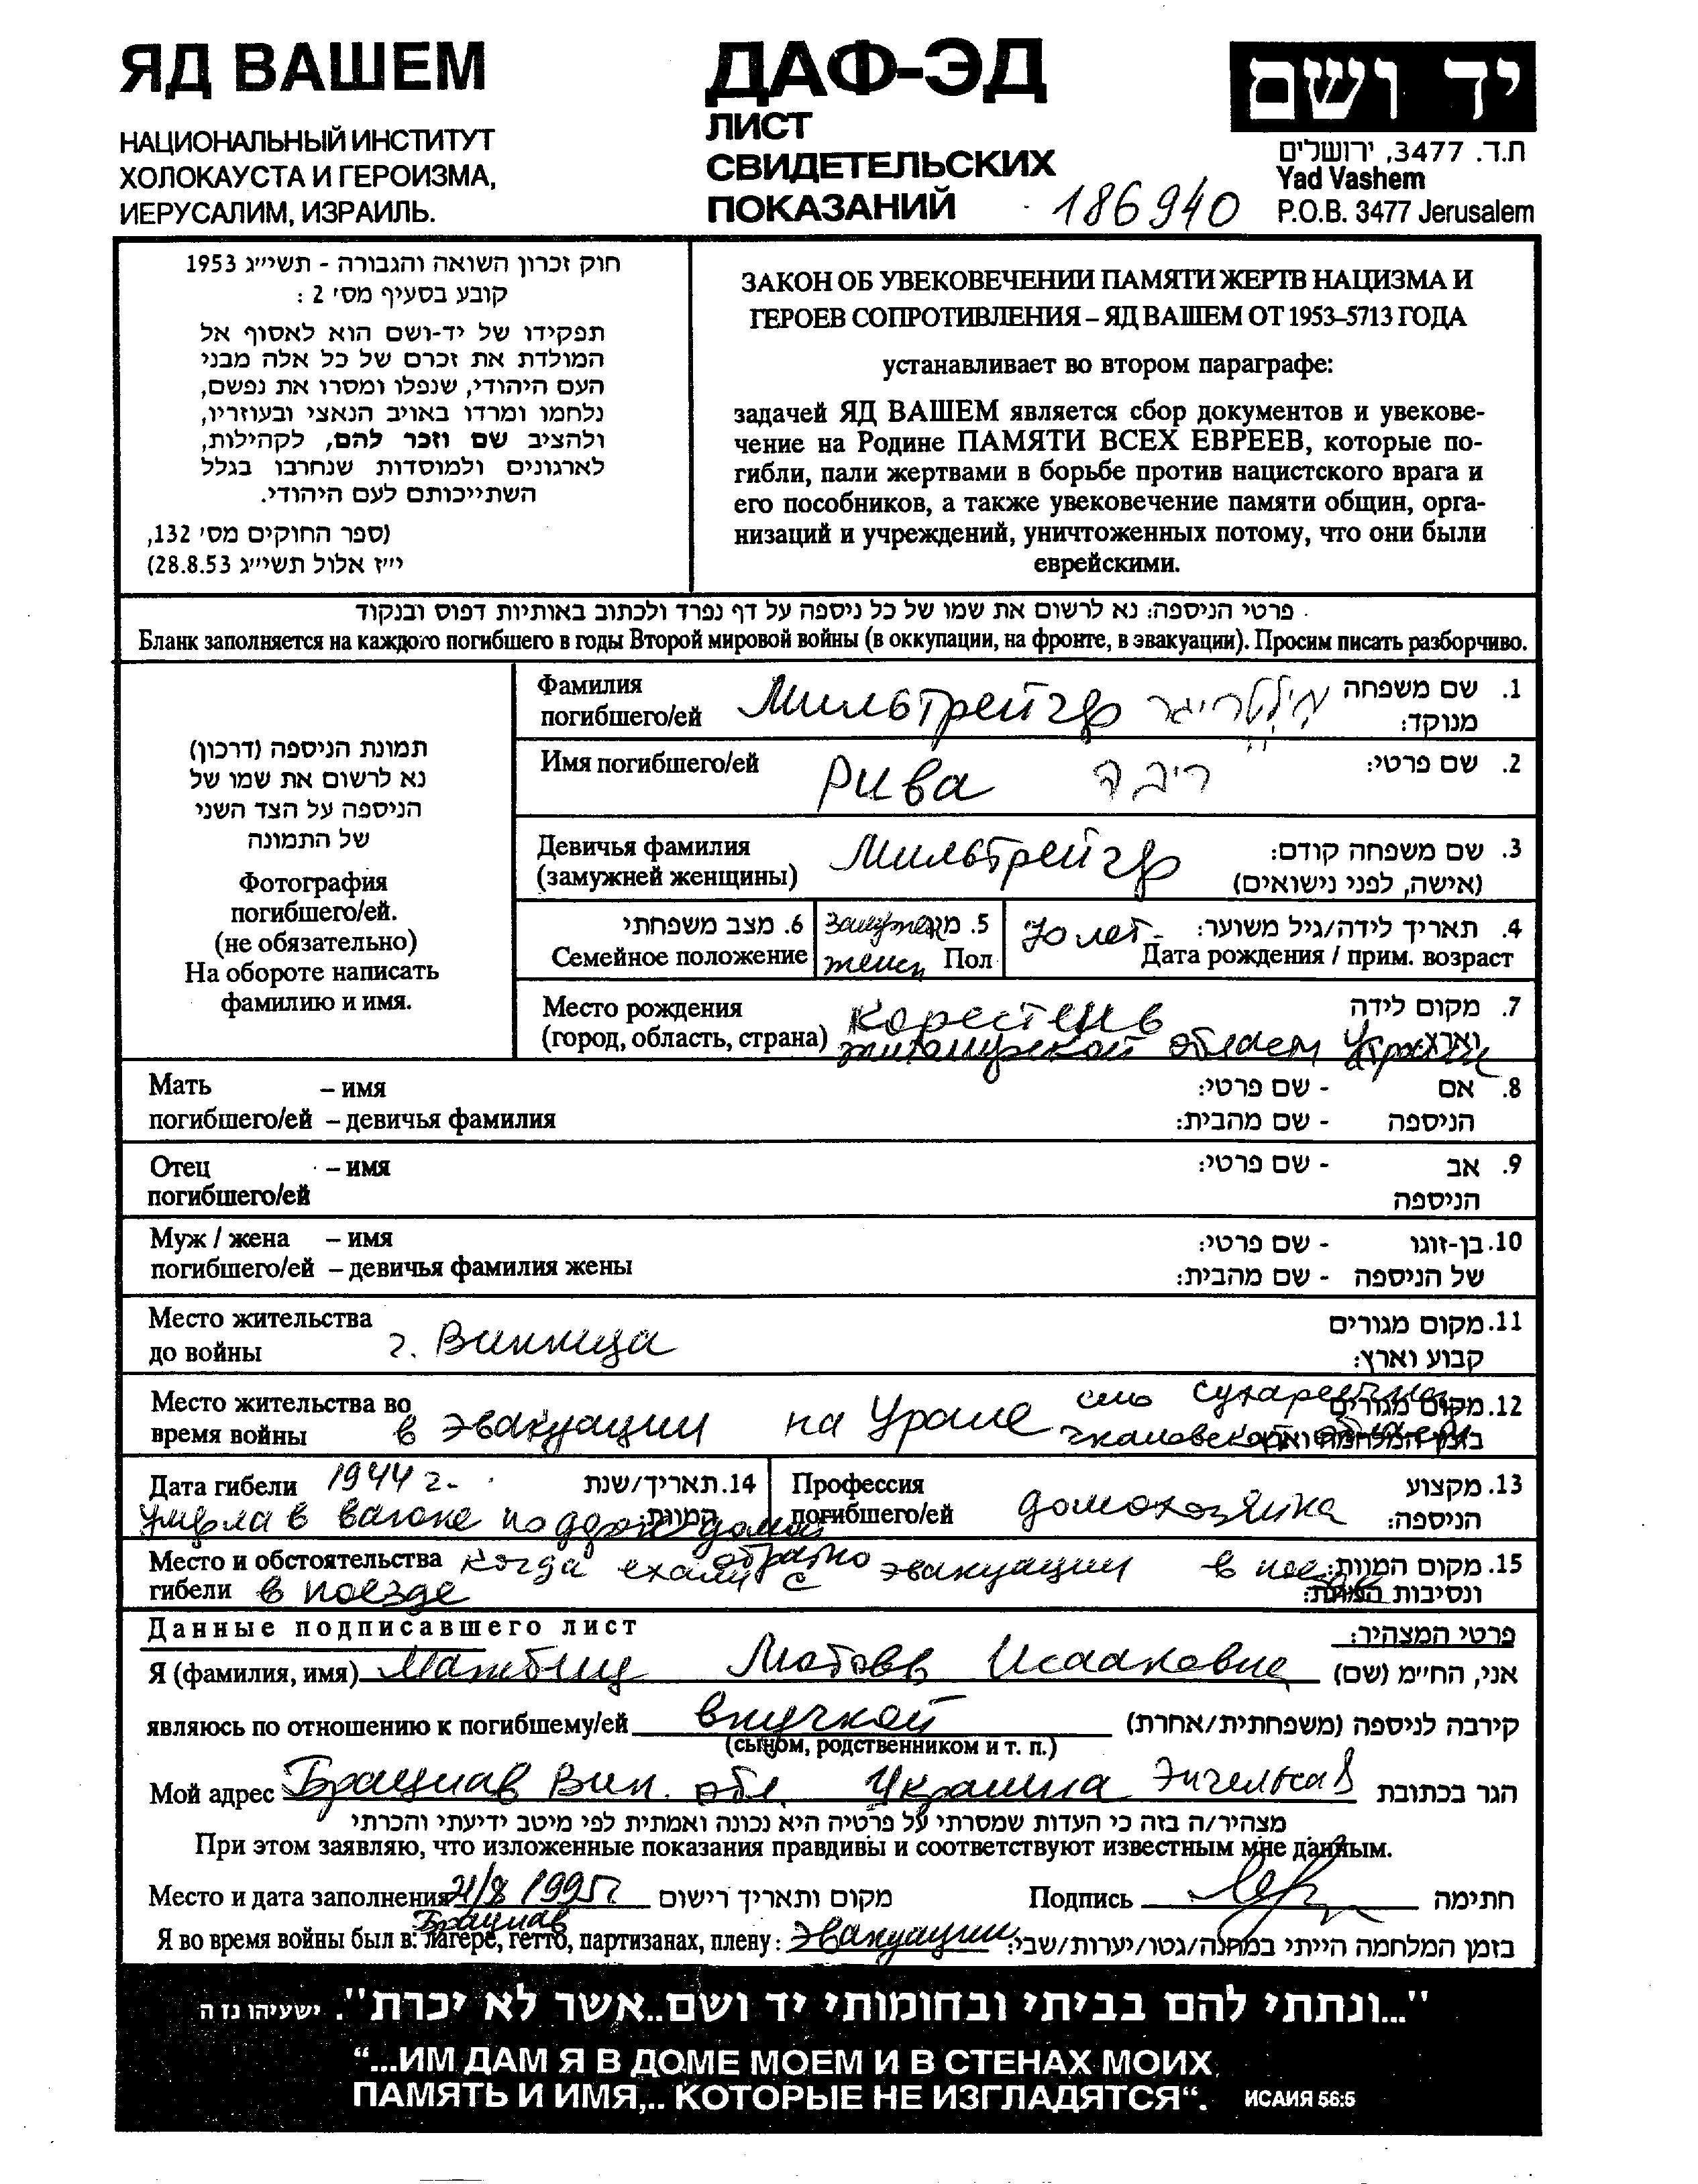 ЯД ВАШЕМ
НАЦИОНАЛЬНЫЙ ИНСТИТУТ
ХОЛОКАУСТА И ГЕРОИЗМА,
ИЕРУСАЛИМ, ИЗРАИЛЬ.
ДАФ-ЭД
ЛИСТ
СВИДЕТЕЛЬСКИХ
ПОКАЗАНИЙ 186940
יד ושם
ת.ד. 3477, ירושלים
Yad Vashem
P.O.B. 3477 Jerusalem
חוק זכרון השואה והגבורה - תשי״ג 1953
קובע בסעיף מס׳ 2 :
תפקידו של יד-ושם הוא לאסוף אל
המולדת את זכרם של כל אלה מבני
העם היהודי, שנפלו ומסרו את נפשם,
נלחמו ומרדו באויב הנאצי ובעוזריו,
ולהציב שם וזכר להם, לקהילות,
לארגונים ולמוסדות שנחרבו בגלל
השתייכותם לעם היהודי.
(ספר החוקים מס׳ 132,
י״ז אלול תשי״ג 28.8.53)
ЗАКОН ОБ УВЕКОВЕЧЕНИИ ПАМЯТИ ЖЕРТВ НАЦИЗМА И
ГЕРОЕВ СОПРОТИВЛЕНИЯ – ЯД ВАШЕМ ОТ 1953–5713 ГОДА
устанавливает во втором параграфе:
задачей ЯД ВАШЕМ является сбор документов и увекове-
чение на Родине ПАМЯТИ ВСЕХ ЕВРЕЕВ, которые по-
гибли, пали жертвами в борьбе против нацистского врага и
его пособников, а также увековечение памяти общин, орга-
низаций и учреждений, уничтоженных потому, что они были
еврейскими.
פרטי הניספה: נא לרשום את שמו של כל ניספה על דף נפרד ולכתוב באותיות דפוס ובנקוד
Бланк заполняется на каждого погибшего в годы Второй мировой войны (в оккупации, на фронте, в эвакуации). Просим писать разборчиво.
תמונת הניספה (דרכון)
נא לרשום את שמו של
הניספה על הצד השני
של התמונה
Фотография
погибшего/ей.
(не обязательно)
На обороте написать
фамилию и имя.
Фамилия погибшего/ей Мильтрейгер 1. שם משפחה מנוקד:
Имя погибшего/ей Рива ריבה 2. שם פרטי:
Девичья фамилия (замужней женщины) Мильтрейгер 3. שם משפחה קודם: (אישה, לפני נישואים)
4. תאריך לידה/גיל משוער: 70 лет
Дата рождения / прим. возраст
5. מין Пол женск
6. מצב משפחתי замужем
Семейное положение
Место рождения 7. מקום לידה
(город, область, страна) Корестень וארץ:
житомирской области Украины
Мать – имя - שם פרטי: 8. אם
погибшего/ей – девичья фамилия - שם מהבית: הניספה
Отец – имя - שם פרטי: 9. אב
погибшего/ей הניספה
Муж / жена – имя - שם פרטי: 10. בן-זוגו
погибшего/ей – девичья фамилия жены - שם מהבית: של הניספה
Место жительства 11. מקום מגורים
до войны г. Винница קבוע וארץ:
Место жительства во село 12. מקום מגורים
время войны в эвакуации на Урале чкаловской בזמן המלחמה וארץ:
Дата гибели 1944 г. 14. תאריך/שנת המוות:
умерла в вагоне по дороге домой
Профессия погибшего/ей домохозяйка 13. מקצוע הניספה:
Место и обстоятельства когда ехали обратно с эвакуации 15. מקום המוות:
гибели в поезде ונסיבות המוות:
Данные подписавшего лист פרטי המצהיר:
Я (фамилия, имя) Исааковна אני, החי״מ (שם)
являюсь по отношению к погибшему/ей внучкой קירבה לניספה (משפחתית/אחרת)
(сыном, родственником и т. п.)
Мой адрес Брацлав Вин. обл. Украина Энгельса 8 הגר בכתובת
מצהיר/ה בזה כי העדות שמסרתי על פרטיה היא נכונה ואמתית לפי מיטב ידיעתי והכרתי
При этом заявляю, что изложенные показания правдивы и соответствуют известным мне данным.
Место и дата заполнения 21/8 1995 г. מקום ותאריך רישום Подпись חתימה
Брацлав
Я во время войны был в: лагере, гетто, партизанах, плену: эвакуации בזמן המלחמה הייתי במחנה/גטו/יערות/שבי:
"...ונתתי להם בביתי ובחומותי יד ושם..אשר לא יכרת". ישעיהו נז ה
“...ИМ ДАМ Я В ДОМЕ МОЕМ И В СТЕНАХ МОИХ
ПАМЯТЬ И ИМЯ,.. КОТОРЫЕ НЕ ИЗГЛАДЯТСЯ“. ИСАИЯ 56:5